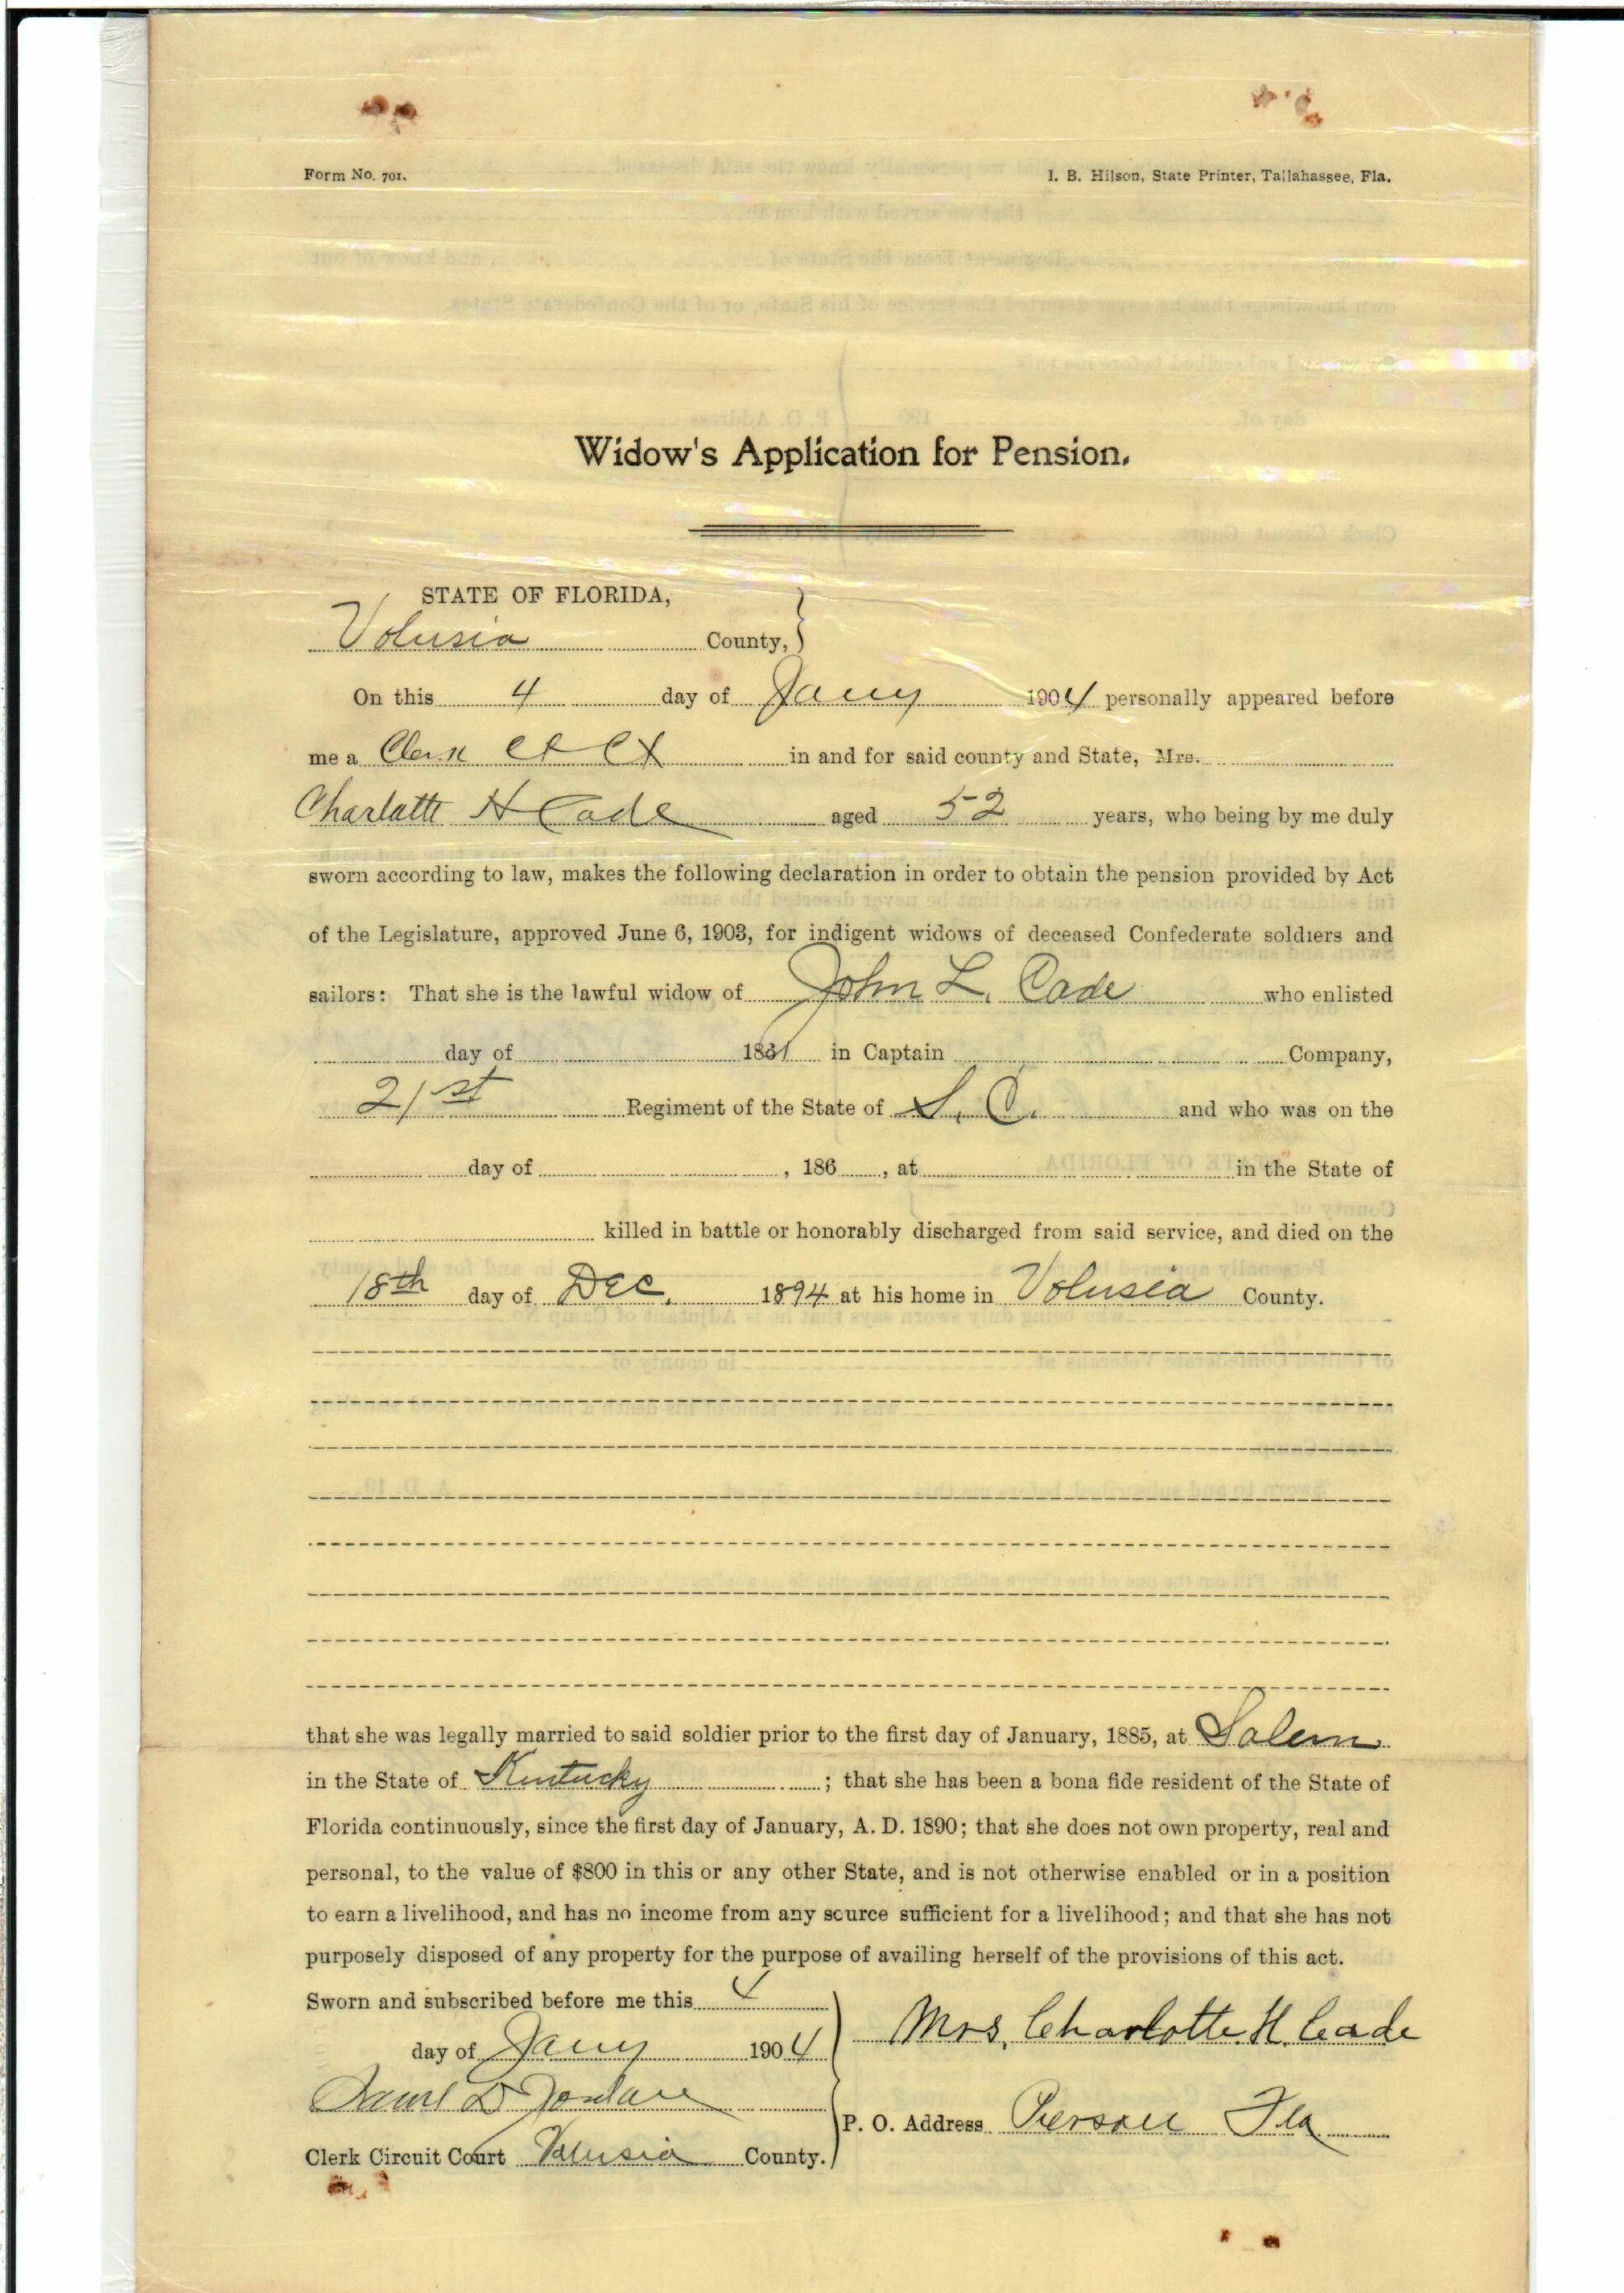 Form No. 701.
I. B. Hilson, State Printer, Tallahassee, Fla.
Widow's Application for Pension.
STATE OF FLORIDA,
Volusia County,
On this 4 day of Jany 1904 personally appeared before
me a Clerk Ct Ct in and for said county and State, Mrs.
Charlotte H Cade aged 52 years, who being by me duly
sworn according to law, makes the following declaration in order to obtain the pension provided by Act
of the Legislature, approved June 6, 1903, for indigent widows of deceased Confederate soldiers and
sailors: That she is the lawful widow of John L. Cade who enlisted
day of 1861 in Captain Company,
21st Regiment of the State of S. C. and who was on the
day of , 186 , at in the State of
killed in battle or honorably discharged from said service, and died on the
18th day of Dec. 1894 at his home in Volusia County.
that she was legally married to said soldier prior to the first day of January, 1885, at Salem
in the State of Kentucky ; that she has been a bona fide resident of the State of
Florida continuously, since the first day of January, A. D. 1890; that she does not own property, real and
personal, to the value of $800 in this or any other State, and is not otherwise enabled or in a position
to earn a livelihood, and has no income from any source sufficient for a livelihood; and that she has not
purposely disposed of any property for the purpose of availing herself of the provisions of this act.
Sworn and subscribed before me this 4
day of Jany 1904
Mrs. Charlotte H. Cade
Saml D Jordan
P. O. Address Pierson Fla
Clerk Circuit Court Volusia County.